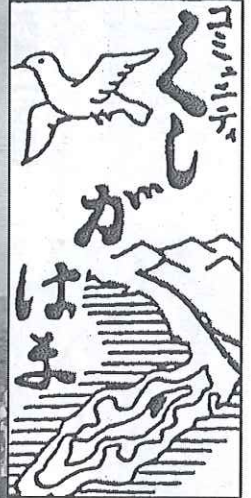 コミュニティ
くしがはま